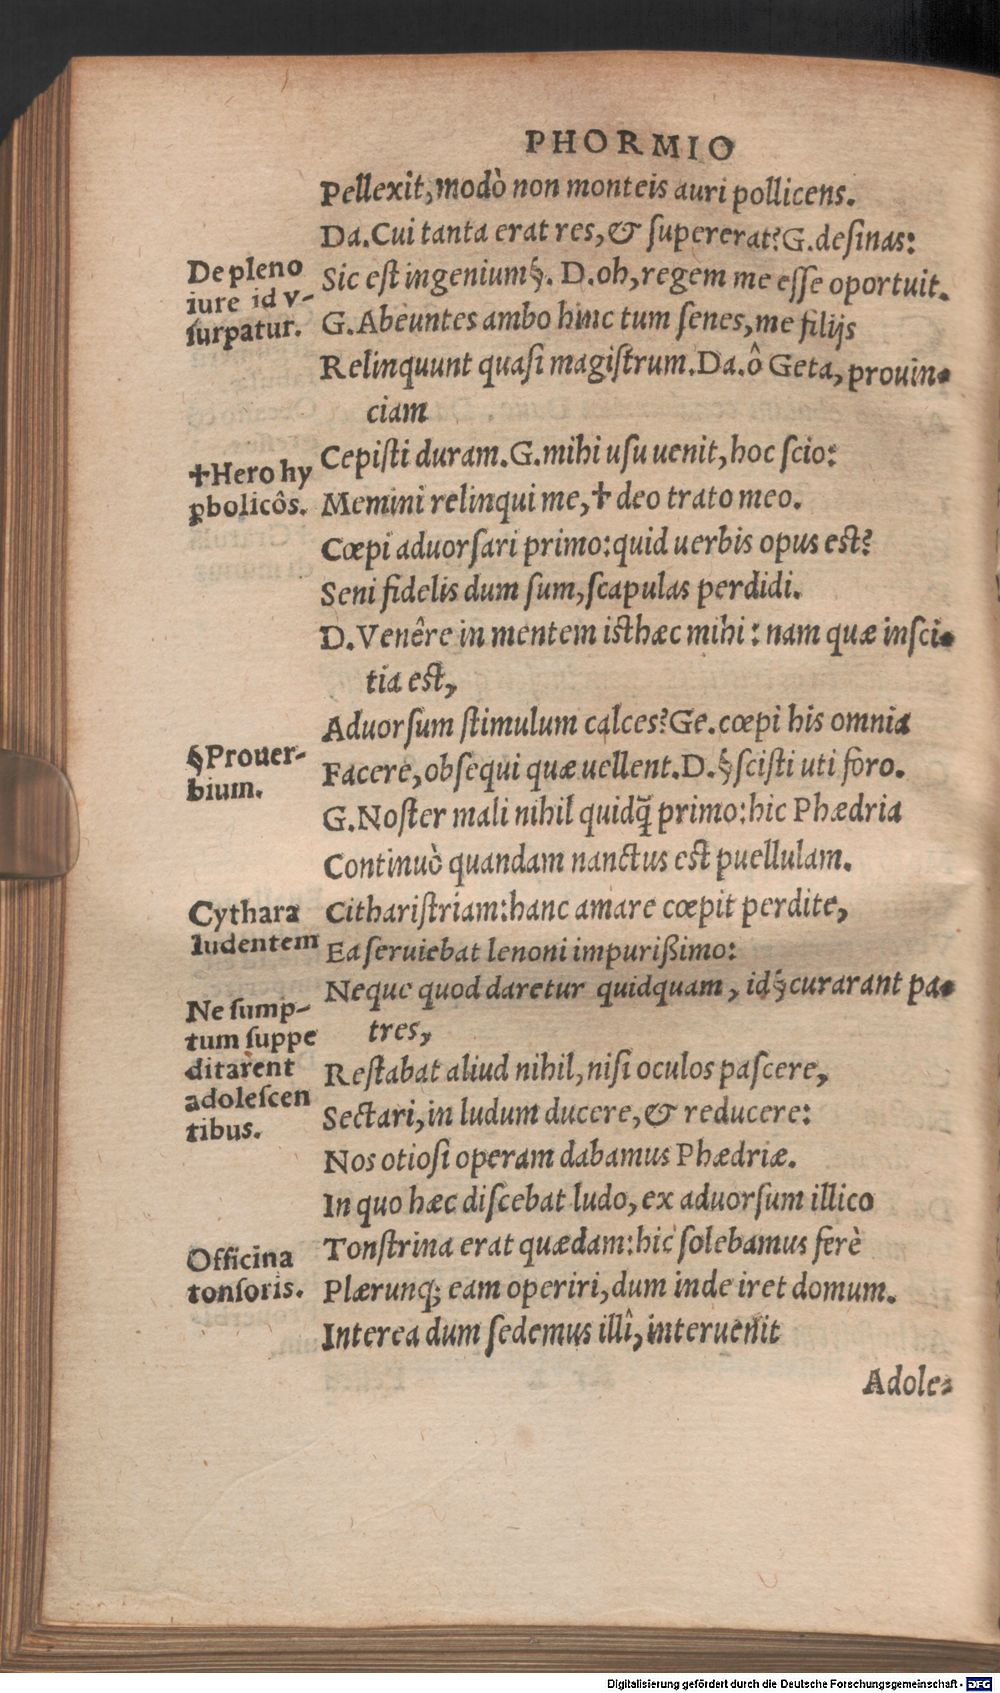 PHORMIO
Pellexit, modò non monteis auri pollicens.
Da. Cui tanta erat res, & ſupererat? G. deſinas:
De pleno
iure id v-
ſurpatur.
Sic eſt ingenium§. D. oh, regem me eſſe oportuit.
G. Abeuntes ambo hinc tum ſenes, me filijs
Relinquunt quaſi magiſtrum. Da. ô Geta, prouin-
ciam
✝Hero hy
ꝑbolicôs.
Cepiſti duram. G. mihi uſu uenit, hoc ſcio:
Memini relinqui me, ✝ deo irato meo.
Cœpi aduorſari primo: quid uerbis opus est?
Seni fidelis dum ſum, ſcapulas perdidi.
D. Venêre in mentem isthæc mihi: nam quæ inſci-
tia est,
Aduorſum ſtimulum calces? Ge. cœpi his omnia
§Prouer-
bium.
Facere, obſequi quæ uellent. D. §ſciſti uti foro.
G. Noſter mali nihil quidq̃ primo: hic Phædria
Continuò quandam nanctus est puellulam.
Cythara
ludentem
Cithariſtriam: hanc amare cœpit perdite,
Ea ſeruiebat lenoni impurißimo:
Ne ſump-
tum ſuppe
ditarent
adoleſcen
tibus.
Neque quod daretur quidquam, id§curarant pa-
tres,
Reſtabat aliud nihil, niſi oculos paſcere,
Sectari, in ludum ducere, & reducere:
Nos otioſi operam dabamus Phædriæ.
In quo hæc diſcebat ludo, ex aduorſum illico
Officina
tonſoris.
Tonſtrina erat quædam: hic ſolebamus ferè
Plærunq; eam operiri, dum inde iret domum.
Interea dum ſedemus illî, interuenit
Adole-
Digitalisierung gefördert durch die Deutsche Forschungsgemeinschaft - DFG